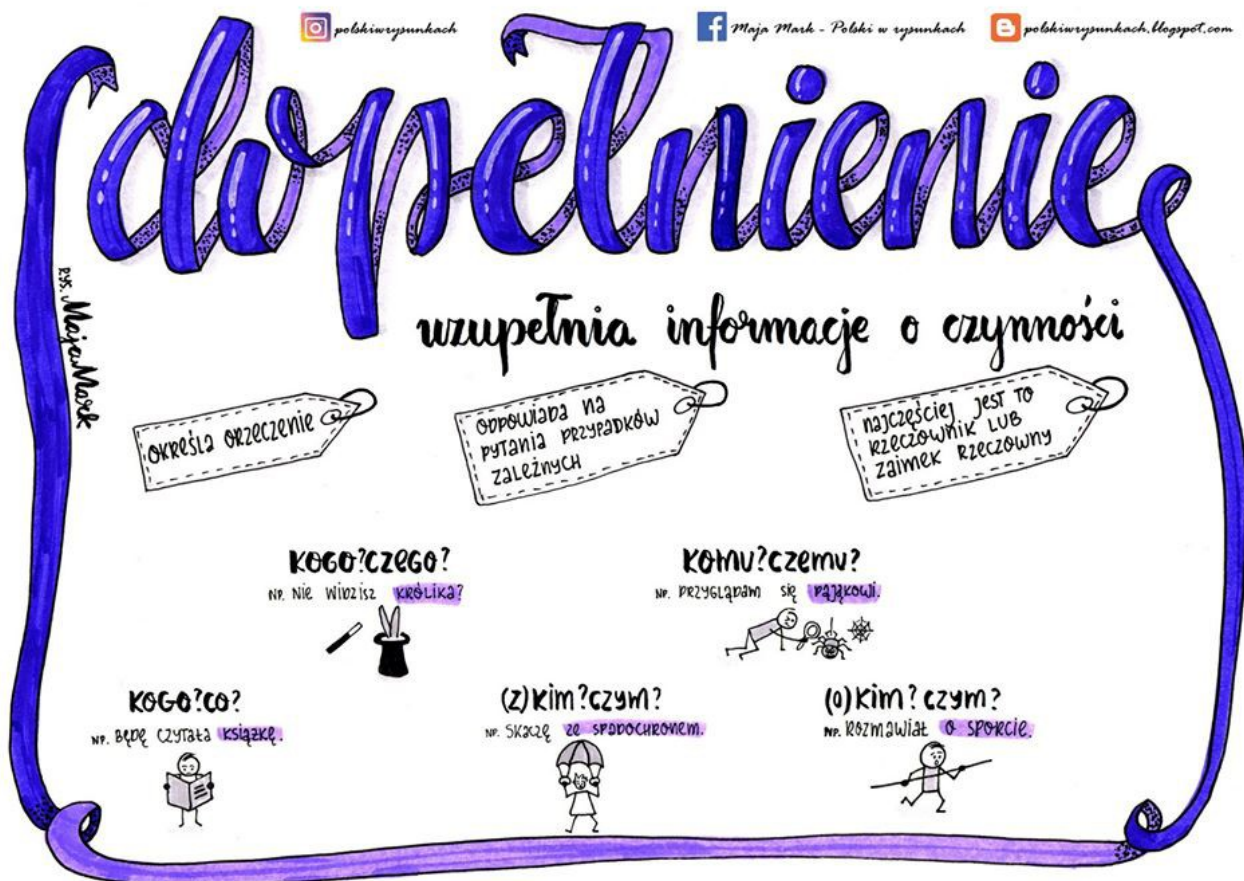 polskiwrysunkach
Maja Mark - Polski w rysunkach
polskiwrysunkach.blogspot.com
dopełnienie
RYS. Maja Mark
uzupełnia informacje o czynności
OKREŚLA ORZECZENIE
ODPOWIADA NA
PYTANIA PRZYPADKÓW
ZALEŻNYCH
NAJCZĘŚCIEJ JEST TO
RZECZOWNIK LUB
ZAIMEK RZECZOWNY
KOGO?CZEGO?
NP. NIE WIDZISZ KRÓLIKA?
KOMU?CZEMU?
NP. PRZYGLĄDAM SIĘ PAJĄKOWI.
KOGO?CO?
NP. BĘDĘ CZYTAŁA KSIĄŻKĘ.
(Z)KIM?CZYM?
NP. SKACZĘ ZE SPADOCHRONEM.
(O)KIM? CZYM?
NP. ROZMAWIAŁ O SPORCIE.